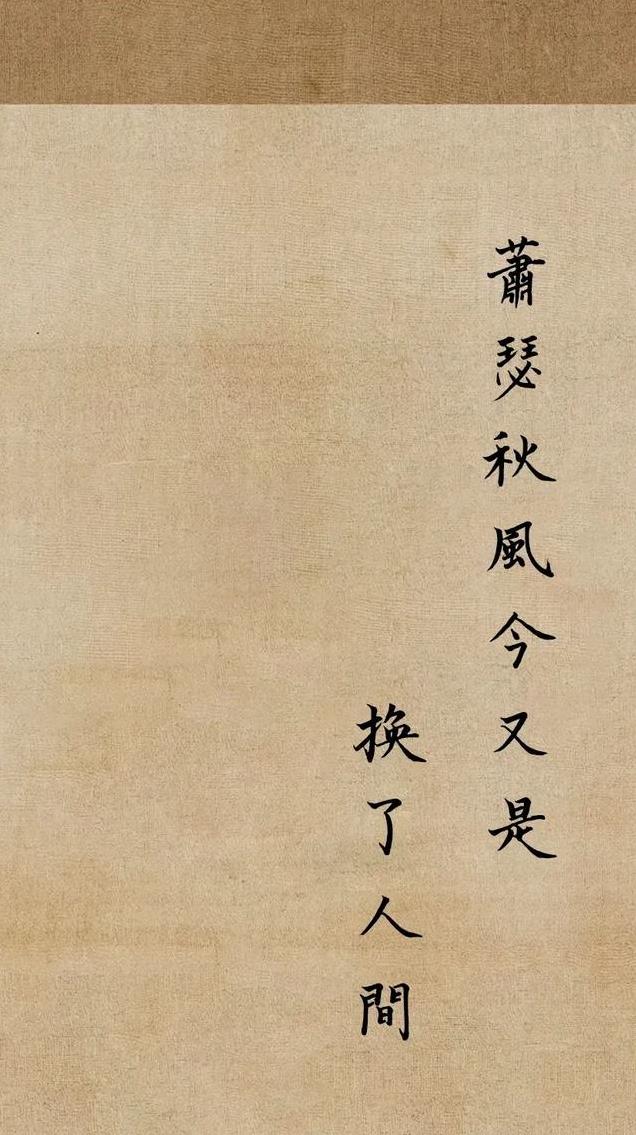 蕭瑟秋風今又是
換了人間